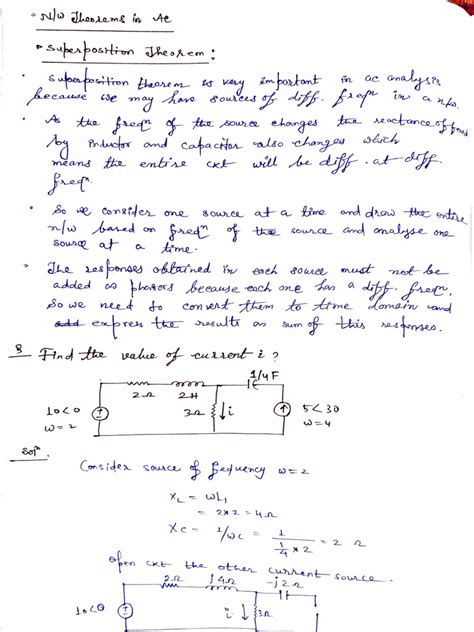 • N/W Theorems in Ac
▸ Superposition Theorem:
• Superposition theorem is very important in ac analysis
because we may have sources of diff. freqn in a n/w.
• As the freqn of the source changes the reactance offered
by inductor and capacitor also changes which
means the entire ckt will be diff. at diff.
freqn.
• So we consider one source at a time and draw the entire
n/w based on freqn of the source and analyse one
source at a time.
• The responses obtained in each source must not be
added as phasors because each one has a diff. freqn.
So we need to convert them to time domain and
express the results as sum of this responses.
Find the value of current i?
1/4F
2Ω 2H
10<0 3Ω i 5<30
ω=2 ω=4
Soln
Consider source of fequency ω=2
XL = ωL
= 2*2 = 4Ω
Xc = 1/ωc = 1 / (1/4 * 2) = 2 Ω
Open ckt the other current source.
2Ω j4Ω -j2Ω
10<0 i 3Ω